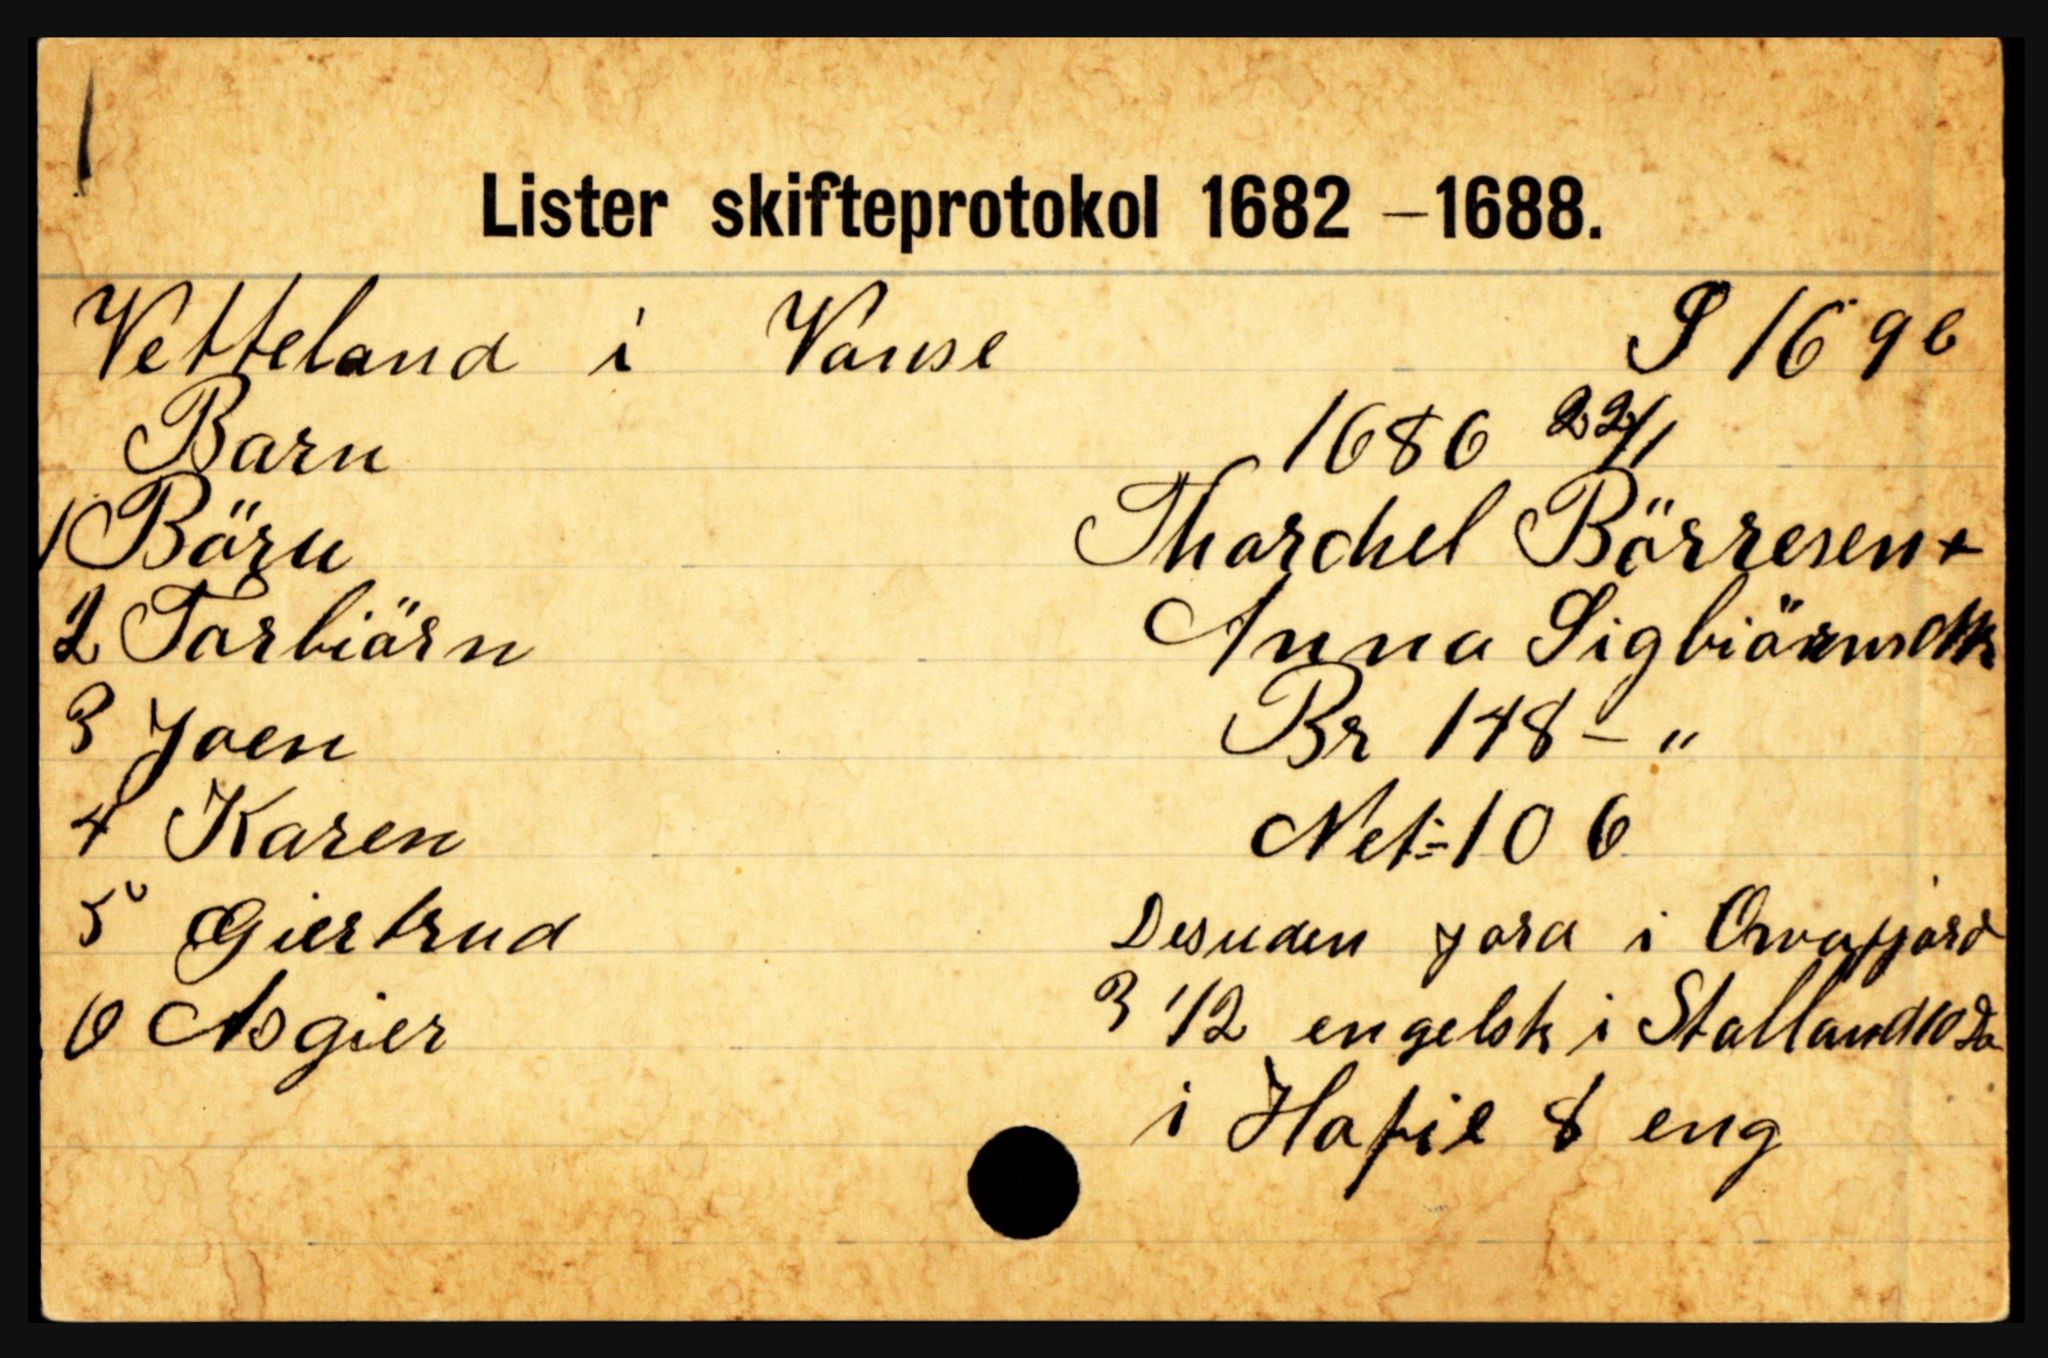 Lister skifteprotokol 1682 – 1688.
Vetteland i Vanse S 169 b
Barn 1686 22/1
1 Börn Thorchel Börresen +
2 Torbiörn Anna Sigbiörns
3 Joen Br 148 – "
4 Karen Net = 106
5 Giertrud Desuden jord i
6 Asgier 3 1/2 engelsk i Stalland 10
i 8 eng